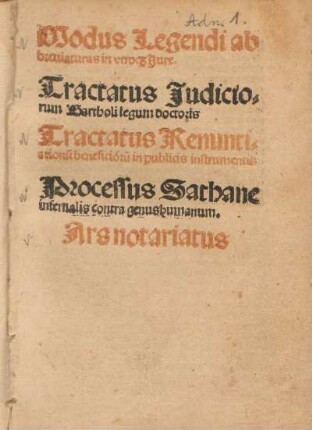 Adm. 1.
Modus Legendi ab
breuiaturas in vtroqꝫ Jure.
Tractatus Judicio-
rum Bartholi legum doctoris
Tractatus Renunti-
ationū beneficiorū in publicis instrumentis
Processus Sathane
infernalis contra genus humanum.
Ars notariatus